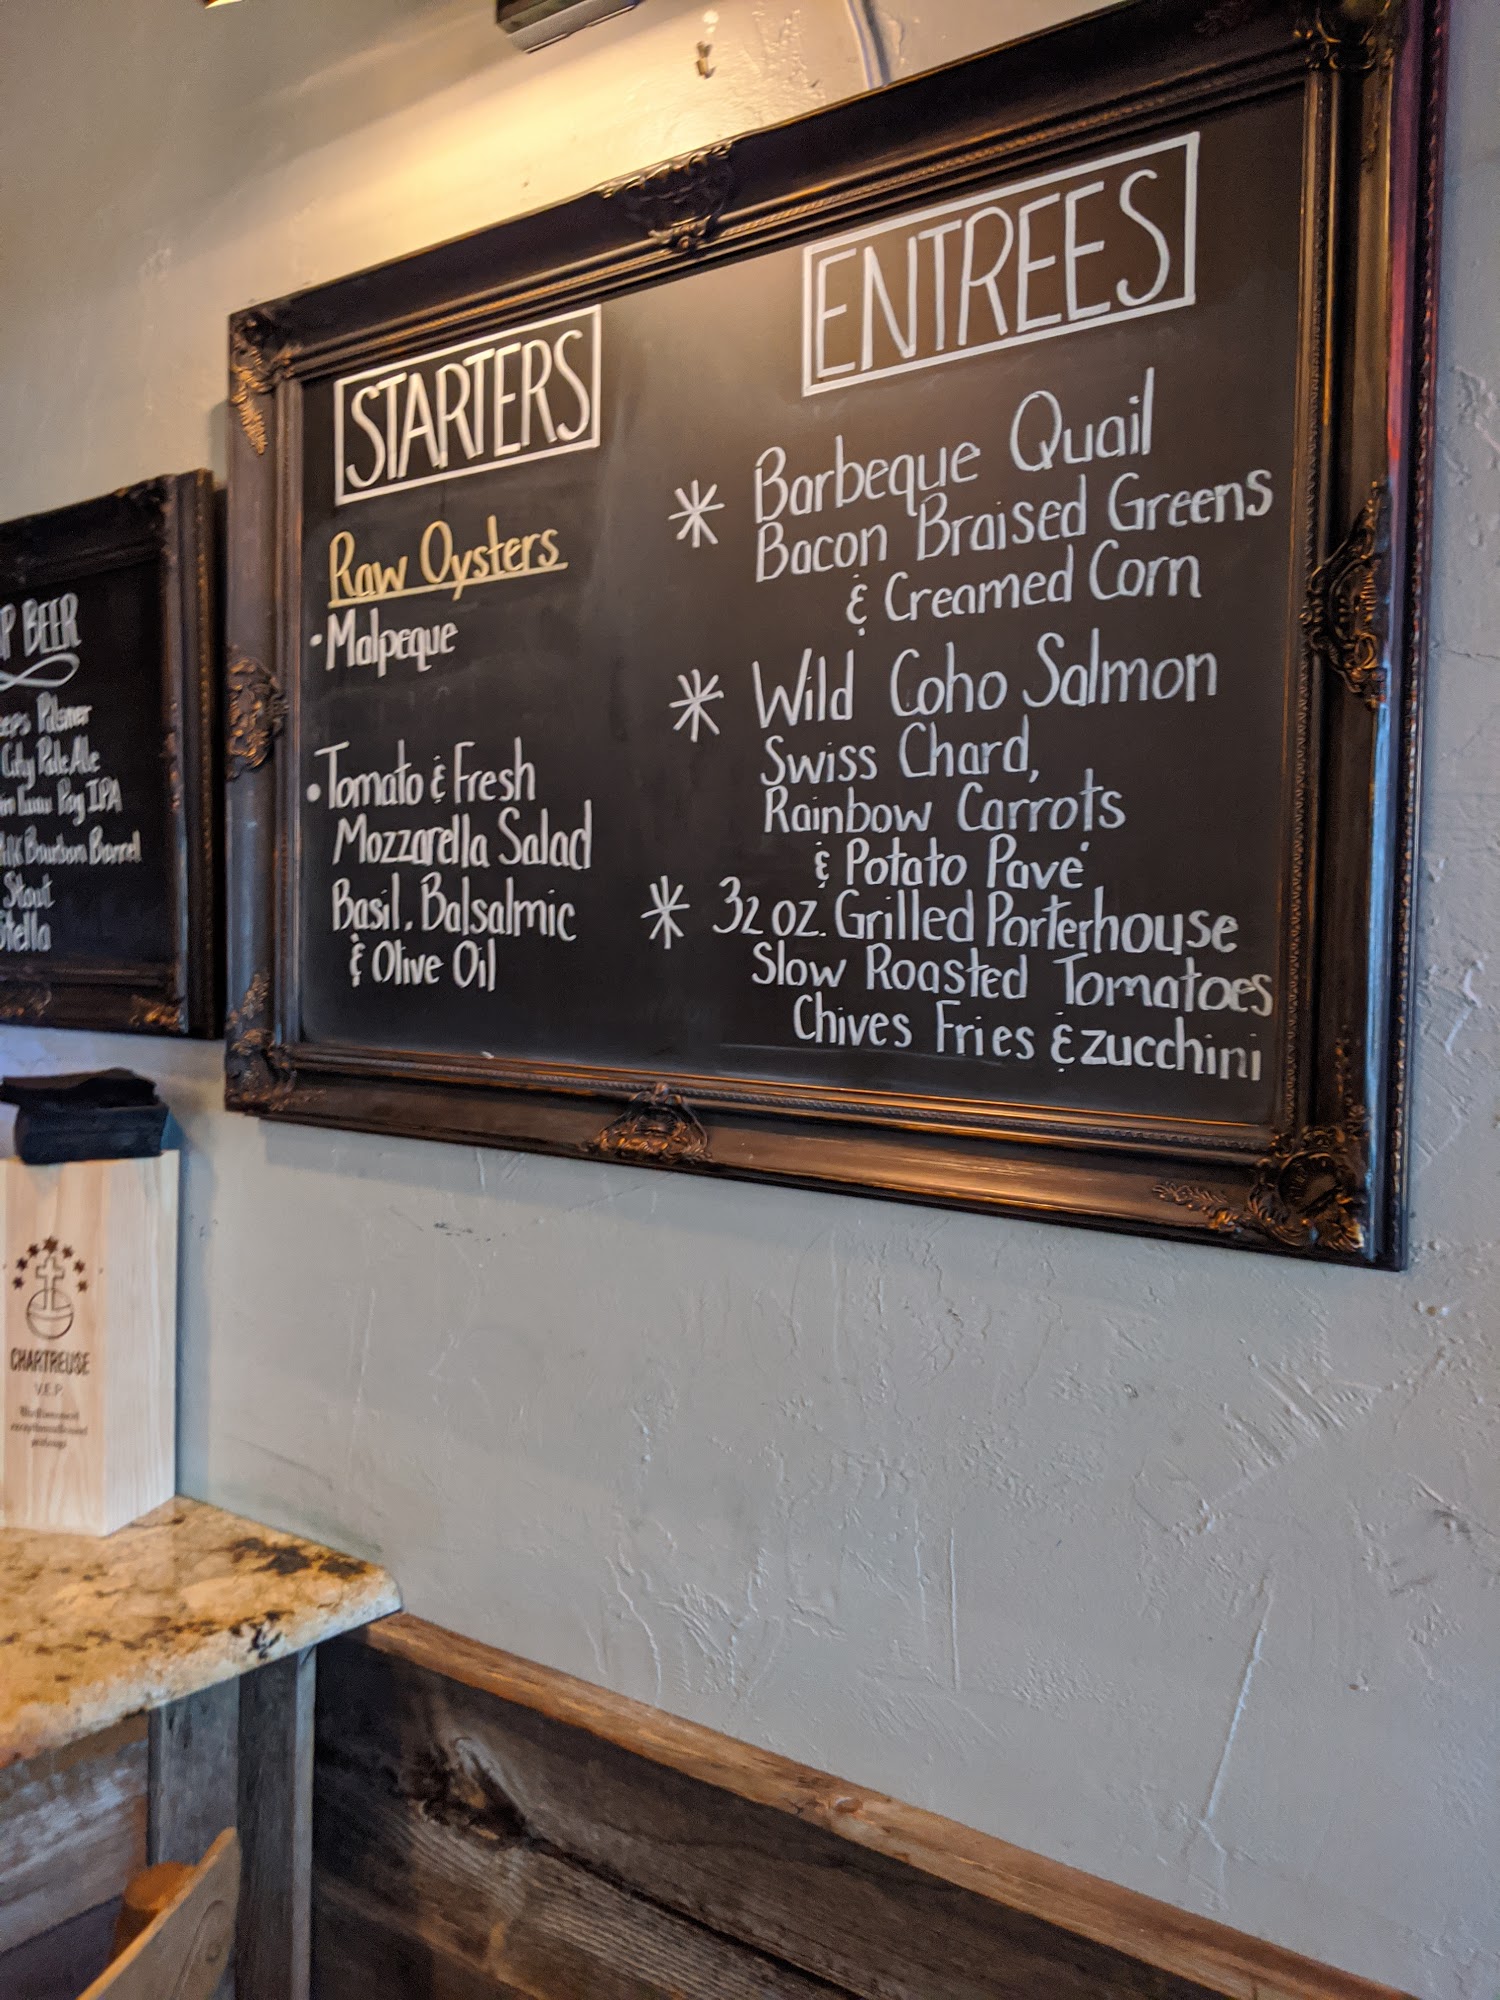 STARTERS
Raw Oysters
• Malpeque
• Tomato & Fresh
Mozzarella Salad
Basil, Balsalmic
& Olive Oil
ENTREES
* Barbeque Quail
Bacon Braised Greens
& Creamed Corn
* Wild Coho Salmon
Swiss Chard,
Rainbow Carrots
& Potato Pavé
* 32 oz. Grilled Porterhouse
Slow Roasted Tomatoes
Chives Fries & zucchini
P BEER
Pilsner
City Pale Ale
IPA
Bourbon Barrel
Stout
Stella
CHARTREUSE
V.E.P.